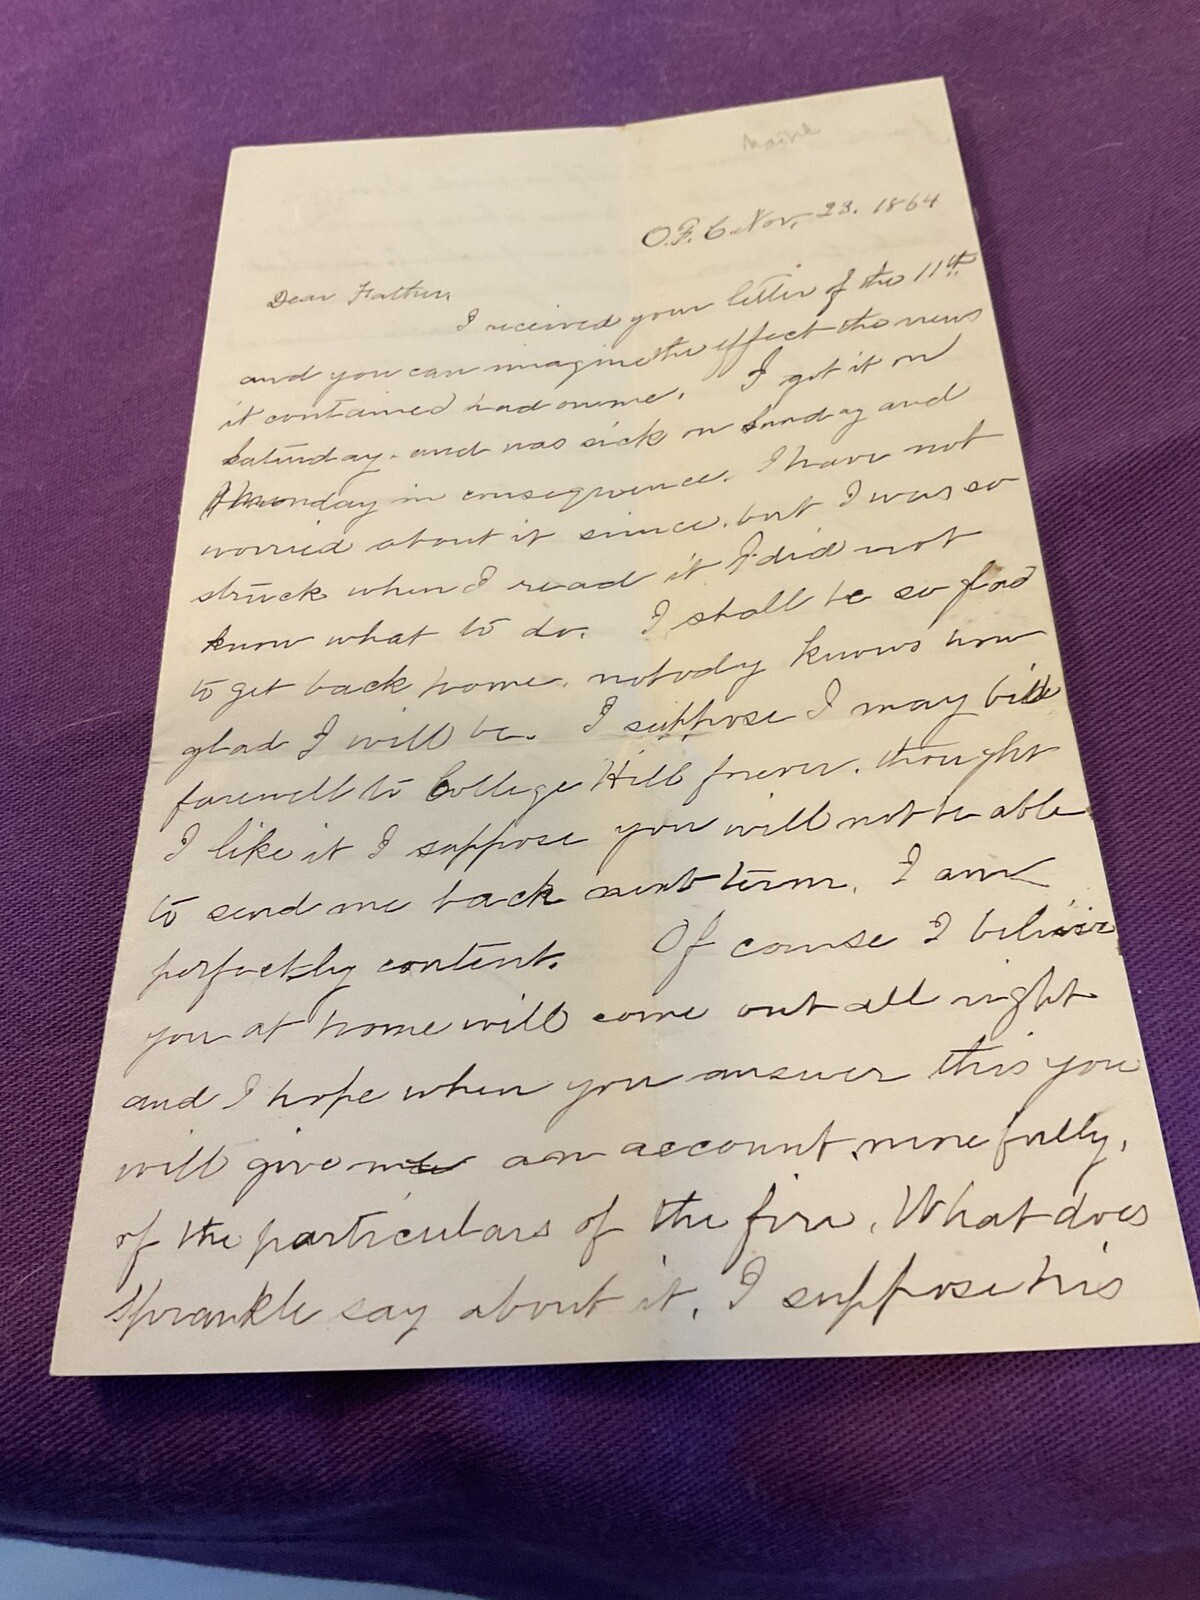 Maine
O.F.C. Nov. 23. 1864
Dear Father,
I received your letter of the 11th
and you can imagine the effect the news
it contained had on me. I got it on
Saturday. and was sick on Sunday and
Monday in consequence. I have not
worried about it since. but I was so
struck when I read it I did not
know what to do. I shall be so glad
to get back home. nobody knows how
glad I will be. I suppose I may bid
farewell to College Hill forever. thought
I like it I suppose you will not be able
to send me back next term. I am
perfectly content. Of course I believe
you at home will come out all right
and I hope when you answer this you
will give me an account more fully.
of the particulars of the fire. What does
Sprankle say about it. I suppose his